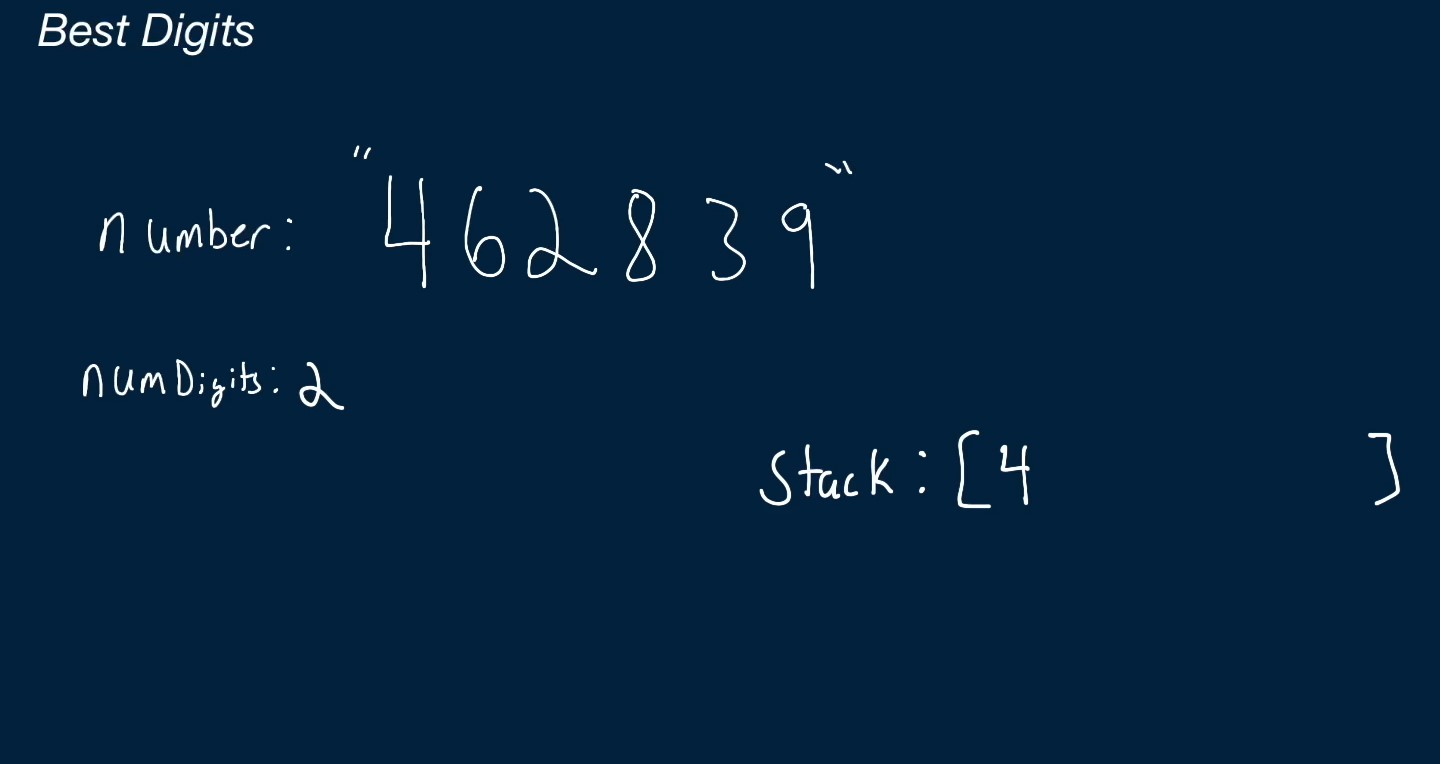 Best Digits
number: "462839"
numDigits: 2
Stack: [4 ]